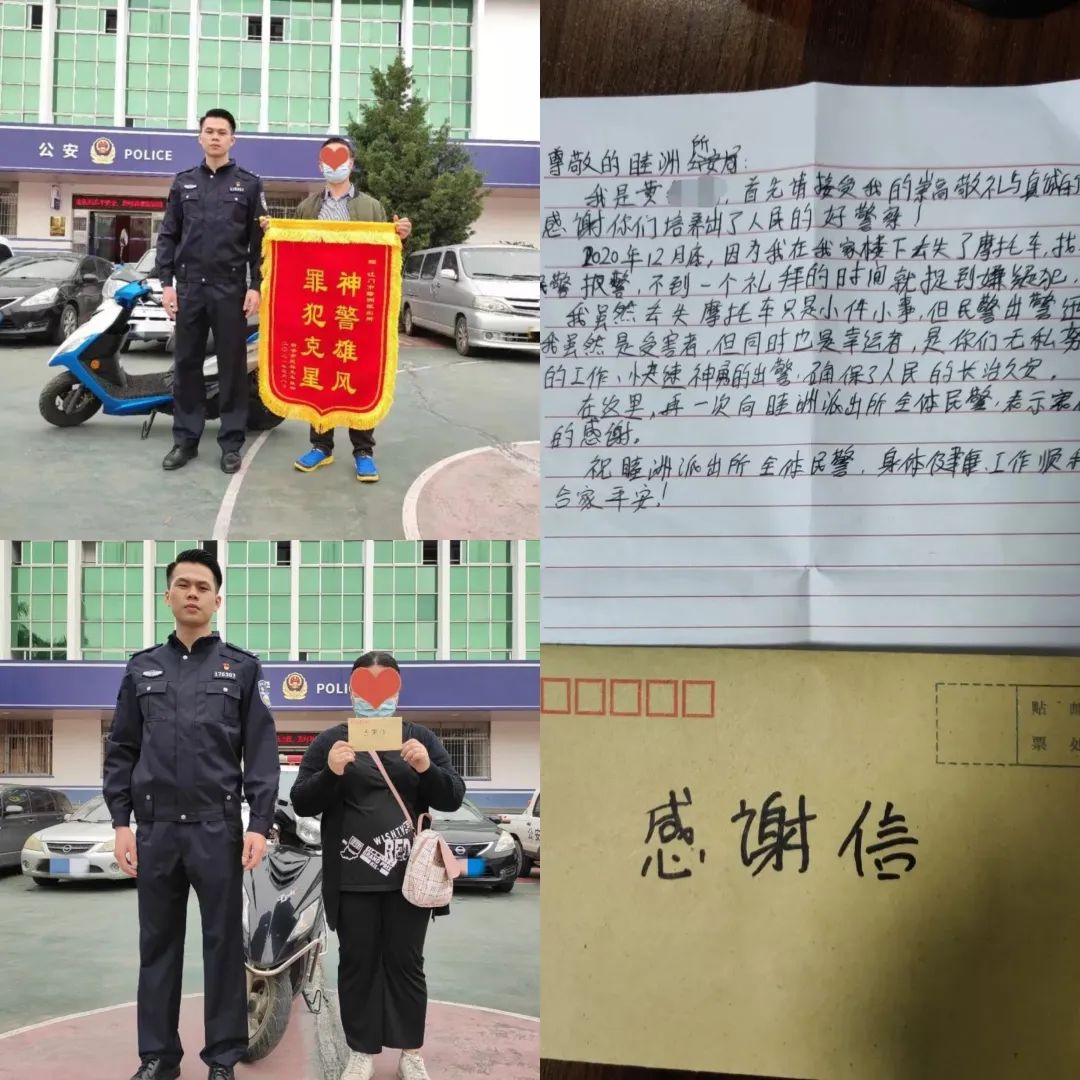 公安 POLICE
神警雄风
罪犯克星
尊敬的睦洲公安局所:
我是黄 ,首先请接受我的崇高敬礼与真诚的
感谢你们培养出了人民的好警察!
2020年12月底,因为我在我家楼下丢失了摩托车,
民警报警 不到一个礼拜的时间就捉到嫌疑犯,
我虽然丢失摩托车只是小件小事,但民警出警还
我虽然是受害者,但同时也是幸运者,是你们无私
的工作、快速神勇的出警,确保了人民的长治久安。
在这里,再一次向睦洲派出所全体民警,表示衷心
的感谢。
祝睦洲派出所全体民警,身体健康、工作顺利
合家平安!
POLI
176303
感谢信
WISHTV
公安
贴邮
票处
感谢信